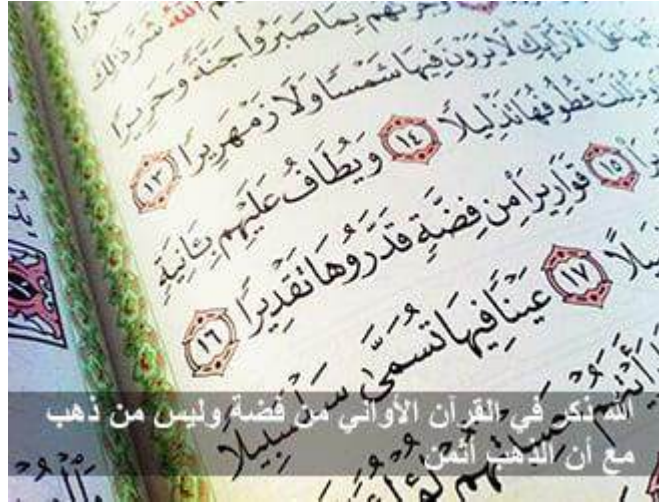 الله شر ذلك
وجزىهم بما صبروا جنة وحريرا
على الأرائك لا يرون فيها شمسا ولا زمهريرا ١٣
وذللت قطوفها تذليلا ١٤ ويطاف عليهم بـَٔانية
١٥ قواريرا من فضة قدروها تقديرا ١٦
١٧ عينا فيها تسمى سلسبيلا
رأيتهم حسبتهم لؤلؤا
الله ذكر في القرآن الأواني من فضة وليس من ذهب
مع أن الذهب أثمن